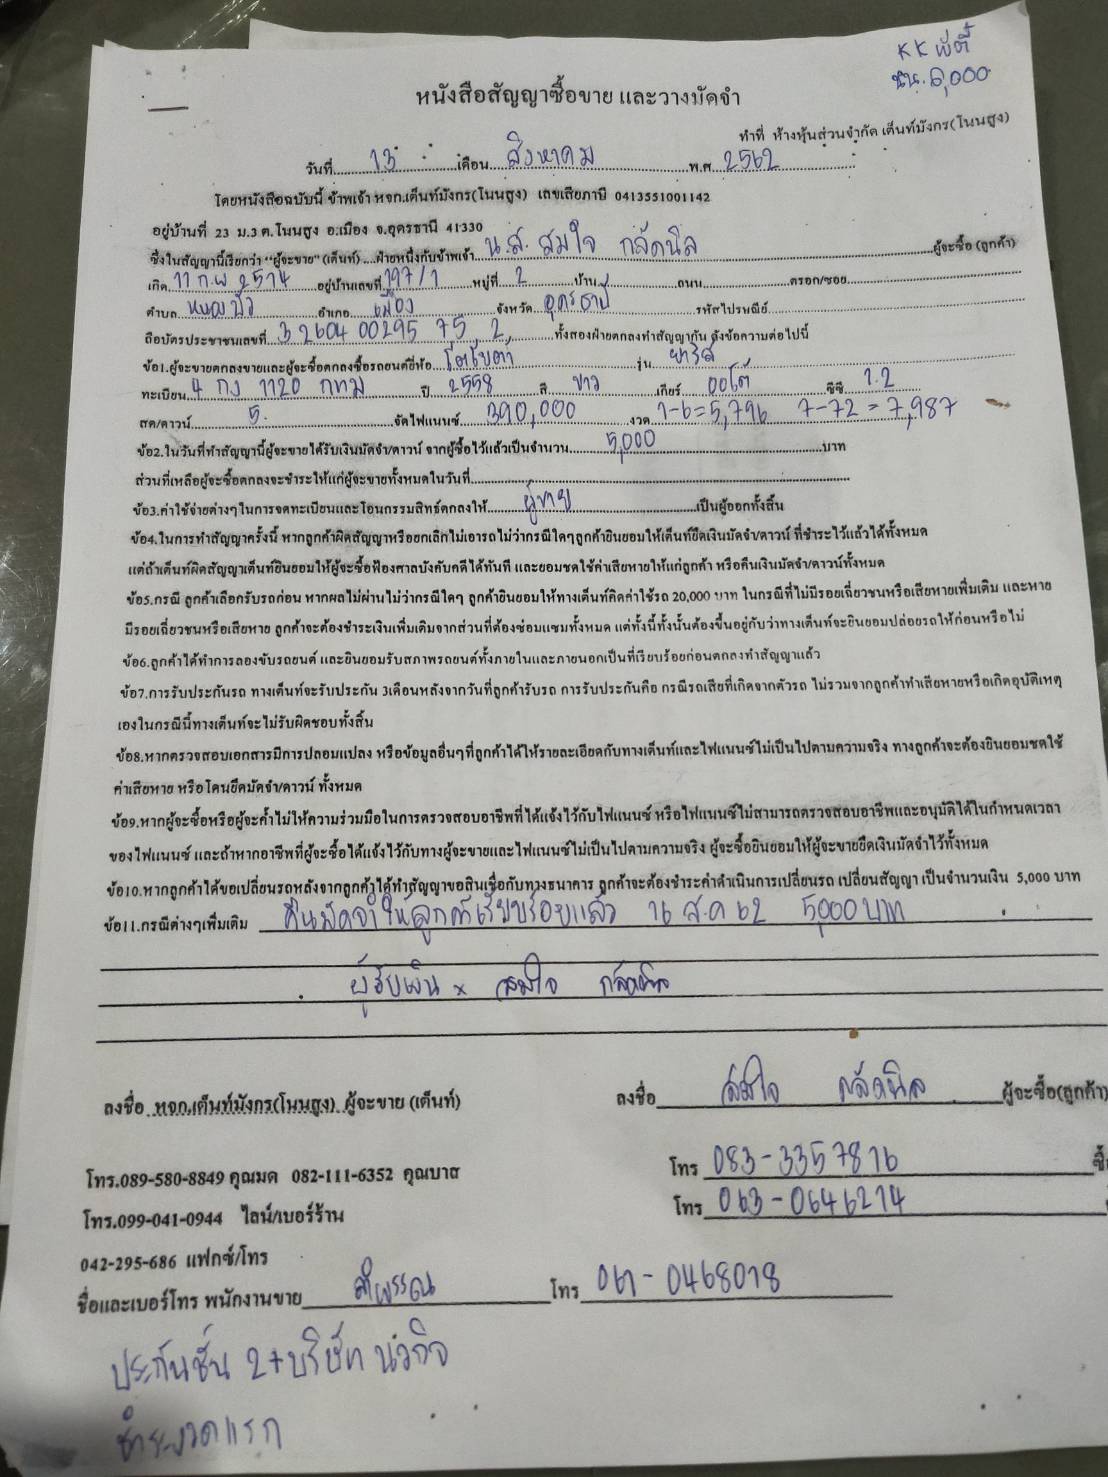 KK พัตี้
นน. 6,000
หนังสือสัญญาซื้อขาย และวางมัดจำ
ทำที่ ห้างหุ้นส่วนจำกัด เต็นท์มังกร(โนนสูง)
วันที่ 13 เดือน สิงหาคม พ.ศ 2562
โดยหนังสือฉบับนี้ ข้าพเจ้า หจก.เต็นท์มังกร(โนนสูง) เลขเสียภาษี 0413551001142
อยู่บ้านที่ 23 ม.3 ต.โนนสูง อ.เมือง จ.อุดรธานี 41330
ซึ่งในสัญญานี้เรียกว่า "ผู้จะขาย" (เต็นท์) ....ฝ่ายหนึ่งกับข้าพเจ้า น.ส. สมใจ กลัดนิล ผู้จะซื้อ (ลูกค้า)
เกิด 11 ก.พ 2514 อยู่บ้านเลขที่ 197/1 หมู่ที่ 2 บ้าน ถนน ตรอก/ซอย
ตำบล หนองบัว อำเภอ เมือง จังหวัด อุดรธานี รหัสไปรษณีย์
ถือบัตรประชาชนเลขที่ 3 2604 00295 75 2 ทั้งสองฝ่ายตกลงทำสัญญากัน ดังข้อความต่อไปนี้
ข้อ1.ผู้จะขายตกลงขายและผู้จะซื้อตกลงซื้อรถยนต์ยี่ห้อ โตโยต้า รุ่น ยาริส
ทะเบียน 4 กง 1120 กทม ปี 2558 สี ขาว เกียร์ ออโต้ ซีซี 1.2
สด/ดาวน์ 5. จัดไฟแนนซ์ 390,000 งวด 1-6=5,796 7-72 = 7,987
ข้อ2.ในวันที่ทำสัญญานี้ผู้จะขายได้รับเงินมัดจำ/ดาวน์ จากผู้ซื้อไว้แล้วเป็นจำนวน 5,000 บาท
ส่วนที่เหลือผู้จะซื้อตกลงจะชำระให้แก่ผู้จะขายทั้งหมดในวันที่
ข้อ3.ค่าใช้จ่ายต่างๆในการจดทะเบียนและโอนกรรมสิทธ์ตกลงให้ ผู้ขาย เป็นผู้ออกทั้งสิ้น
ข้อ4.ในการทำสัญญาครั้งนี้ หากลูกค้าผิดสัญญาหรือยกเลิกไม่เอารถไม่ว่ากรณีใดๆลูกค้ายินยอมให้เต็นท์ยึดเงินมัดจำ/ดาวน์ ที่ชำระไว้แล้วได้ทั้งหมด
แต่ถ้าเต็นท์ผิดสัญญาเต็นท์ยินยอมให้ผู้จะซื้อฟ้องศาลบังคับคดีได้ทันที และยอมชดใช้ค่าเสียหายให้แก่ลูกค้า หรือคืนเงินมัดจำ/ดาวน์ทั้งหมด
ข้อ5.กรณี ลูกค้าเลือกรับรถก่อน หากผลไม่ผ่านไม่ว่ากรณีใดๆ ลูกค้ายินยอมให้ทางเต็นท์คิดค่าใช้รถ 20,000 บาท ในกรณีที่ไม่มีรอยเฉี่ยวชนหรือเสียหายเพิ่มเติม และหาย
มีรอยเฉี่ยวชนหรือเสียหาย ลูกค้าจะต้องชำระเงินเพิ่มเติมจากส่วนที่ต้องซ่อมแซมทั้งหมด แต่ทั้งนี้ทั้งนั้นต้องขึ้นอยู่กับว่าทางเต็นท์จะยินยอมปล่อยรถให้ก่อนหรือไม่
ข้อ6.ลูกค้าได้ทำการลองขับรถยนต์ และยินยอมรับสภาพรถยนต์ทั้งภายในและภายนอกเป็นที่เรียบร้อยก่อนตกลงทำสัญญาแล้ว
ข้อ7.การรับประกันรถ ทางเต็นท์จะรับประกัน 3เดือนหลังจากวันที่ลูกค้ารับรถ การรับประกันคือ กรณีรถเสียที่เกิดจากตัวรถ ไม่รวมจากลูกค้าทำเสียหายหรือเกิดอุบัติเหตุ
เองในกรณีนี้ทางเต็นท์จะไม่รับผิดชอบทั้งสิ้น
ข้อ8.หากตรวจสอบเอกสารมีการปลอมแปลง หรือข้อมูลอื่นๆที่ลูกค้าได้ให้รายละเอียดกับทางเต็นท์และไฟแนนซ์ไม่เป็นไปตามความจริง ทางลูกค้าจะต้องยินยอมชดใช้
ค่าเสียหาย หรือโดนยึดมัดจำ/ดาวน์ ทั้งหมด
ข้อ9.หากผู้จะซื้อหรือผู้จะค้ำไม่ให้ความร่วมมือในการตรวจสอบอาชีพที่ได้แจ้งไว้กับไฟแนนซ์ หรือไฟแนนซ์ไม่สามารถตรวจสอบอาชีพและอนุมัติได้ในกำหนดเวลา
ของไฟแนนซ์ และถ้าหากอาชีพที่ผู้จะซื้อได้แจ้งไว้กับทางผู้จะขายและไฟแนนซ์ไม่เป็นไปตามความจริง ผู้จะซื้อยินยอมให้ผู้จะขายยึดเงินมัดจำไว้ทั้งหมด
ข้อ10.หากลูกค้าได้ขอเปลี่ยนรถหลังจากลูกค้าได้ทำสัญญาขอสินเชื่อกับทางธนาคาร ลูกค้าจะต้องชำระค่าดำเนินการเปลี่ยนรถ เปลี่ยนสัญญา เป็นจำนวนเงิน 5,000 บาท
ข้อ11.กรณีต่างๆเพิ่มเติม คืนมัดจำให้ลูกค้าเรียบร้อยแล้ว 16 ส.ค 62 5,000 บาท
ผู้รับเงิน x สมใจ กลัดนิล
ลงชื่อ หจก.เต็นท์มังกร(โนนสูง) ผู้จะขาย (เต็นท์) ลงชื่อ สมใจ กลัดนิล ผู้จะซื้อ(ลูกค้า)
โทร.089-580-8849 คุณมด 082-111-6352 คุณบาส โทร 083-3357816
โทร.099-041-0944 ไลน์/เบอร์ร้าน โทร 063-0646214
042-295-686 แฟกซ์/โทร
ชื่อและเบอร์โทร พนักงานขาย ลำพรรณ โทร 061-0468018
ประกันชั้น 2+ บริษัท นวกิจ
ชำระงวดแรก